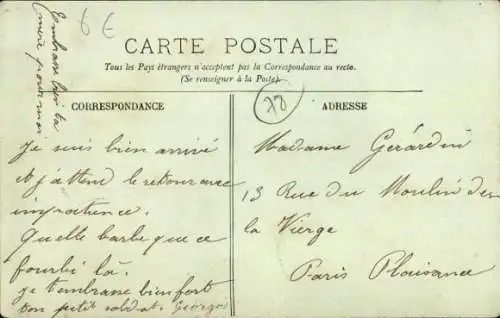 Embrasse bien ta
mère pour moi
6€
CARTE POSTALE
Tous les Pays étrangers n'acceptent pas la Correspondance au recto.
(Se renseigner à la Poste).
78
CORRESPONDANCE
Je suis bien arrivé
et j'attend le retour avec
impatience.
Quelle barbe que ce
fourbi là.
je t'embrasse bien fort
ton petit soldat. Georges
ADRESSE
Madame Gérardin
13 Rue du Moulin de
la Vierge
Paris Plaisance